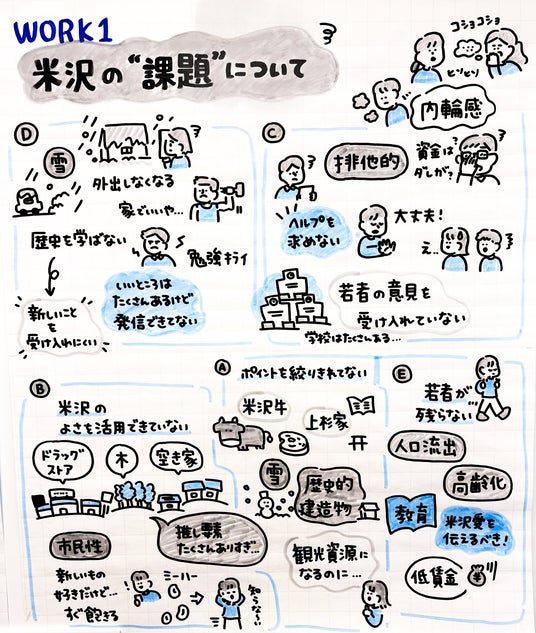 WORK1
米沢の"課題"について
コショコショ
ヒソヒソ
内輪感
D
雪
外出しなくなる
家でいいや…
歴史を学ばない
勉強キライ
新しいこと
を
受け入れにくい
いいところは
たくさんあるけど
発信できてない
C
排他的
資金は
ダレが?
ヘルプを
求めない
大丈夫!
え…
若者の意見を
受け入れていない
学校はたくさんある…
B
米沢の
よさを活用できていない
ドラッグ
ストア
木
空き家
推し要素
たくさんありすぎ…
市民性
新しいもの
好きだけど…
すぐ飽きる
ミーハー
知らな〜い
A
ポイントを絞りきれてない
米沢牛
上杉家
雪
歴史的
建造物
観光資源に
なるのに…
E
若者が
残らない
人口流出
高齢化
教育
米沢愛を
伝えるべき!
低賃金